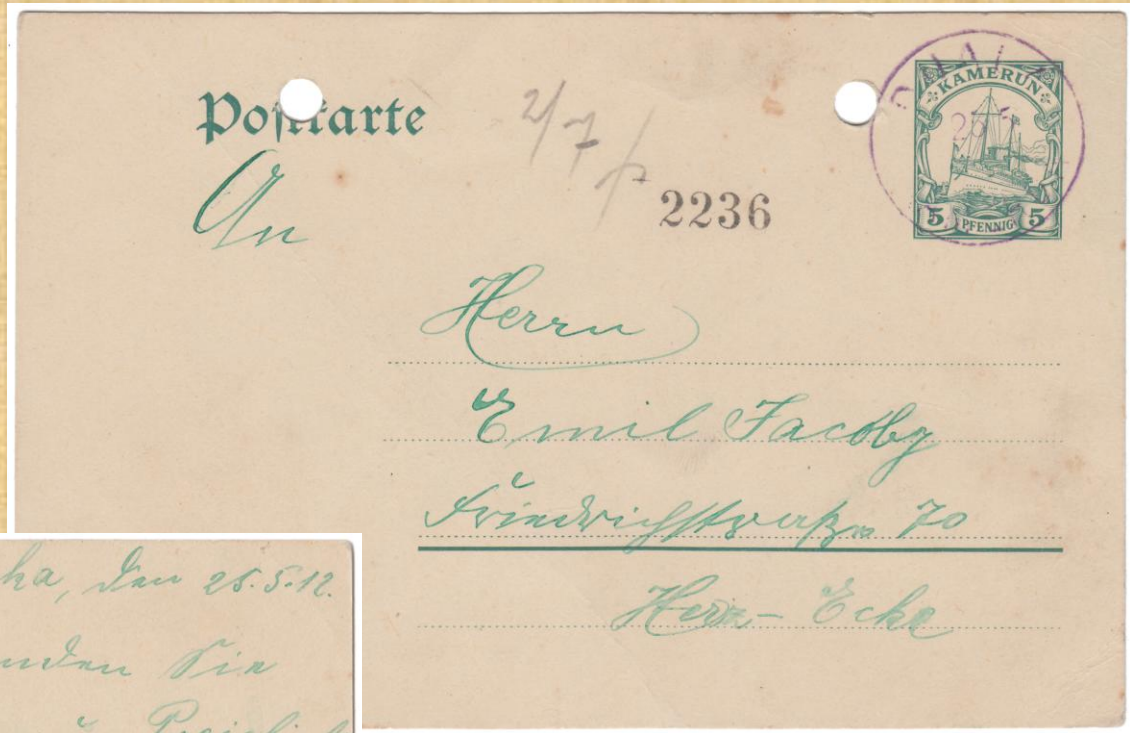 Postkarte
An
2/7
2236
KAMERUN
5 PFENNIG 5
Herrn
Emil Jacoby
Friedrichstraße 70
Ecke
ha, den 25.5.12.
nden Sie